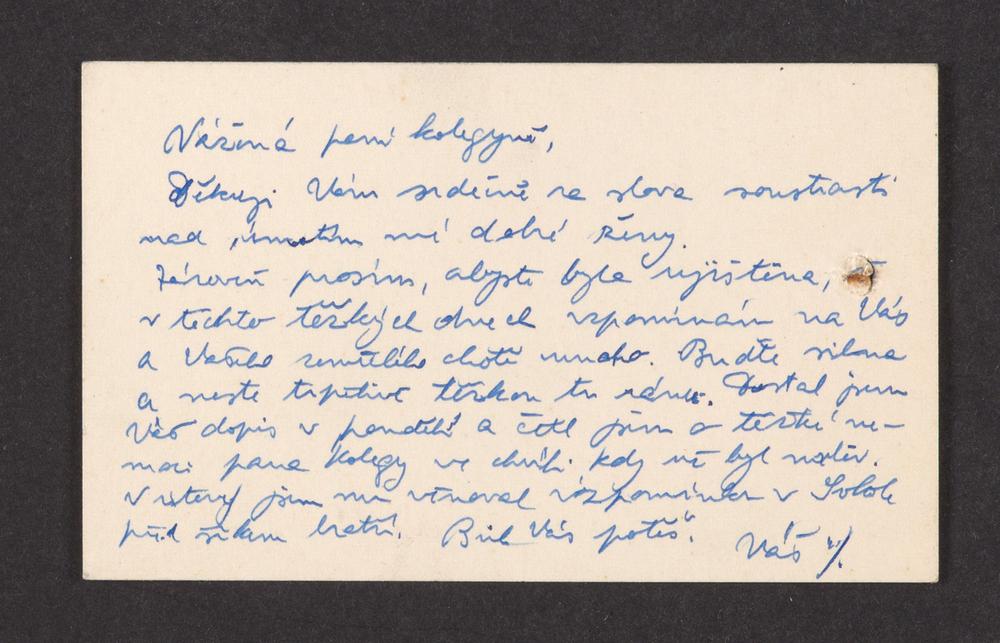 Vážená paní kolegyně,
Děkuji Vám srdečně za slova soustrasti
nad úmrtím mé dobré ženy.
Zároveň prosím, abyste byla ujištěna, že
v těchto těžkých dnech vzpomínám na Vás
a Vašeho zemřelého chotě mnoho. Buďte silna
a neste trpělivě těžkou tu ránu. Dostal jsem
Váš dopis v pondělí a četl jsem o těžké ne-
moci pana kolegy ve chvíli kdy už byl mrtev.
V úterý jsem mu věnoval vzpomínku v Sokole
před šikem bratří. Bůh Vás potěš. Váš